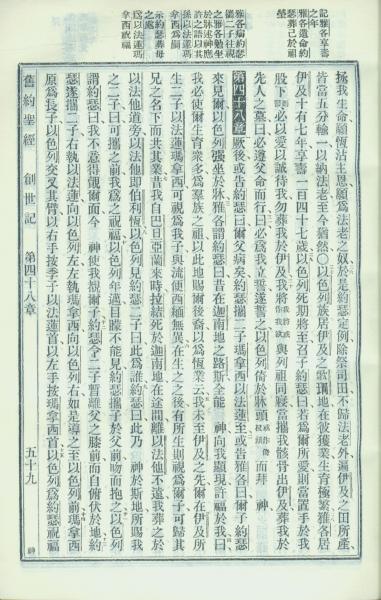 記雅各享壽
之年
雅各遺命約
瑟葬己於祖
墓
雅各病約瑟
攜二子往視
雅各勉坐
於牀述神應
許之語以其
孫以法蓮瑪
拿西為嗣
示約瑟葬母
之處
為以法蓮瑪
拿西祝福
拯我生命願恆沾主恩願為法老之奴於是約瑟定例除祭司田不歸法老外遍伊及之田所產
皆當五分輸一以納法老至今猶然〇以色列族居伊及之歌珊地在彼獲業生育極繁雅各居
伊及十有七年享壽一百四十七歲以色列死期將至召子約瑟曰若為爾所愛則當置手於我
股下必以愛以誠待我勿葬我於伊及我將與列祖同寢當攜我骸骨出伊及葬我於
先人之墓曰必遵父命而行曰必為我立誓遂誓之以色列倚於牀頭而拜 神
第四十八章 厥後或告約瑟曰爾父病矣約瑟攜二子瑪拿西以法蓮至或告雅各曰爾子約瑟
來見爾以色列強坐於牀雅各謂約瑟曰昔在迦南地之路斯全能 神向我顯現許福於我曰
我必使爾生育眾多為羣族之祖以此地賜爾後裔以為恆業云我未至伊及之先爾在伊及所
生二子以法蓮瑪拿西可視為我子與流便西緬無異在生之之後有所生則視為爾子可歸其
兄之名下而共其業昔我自巴旦亞蘭來時拉結死於迦南地在途間離以法他不遠我葬之於
以法他道旁以法他即伯利恆以色列見約瑟二子曰此為誰約瑟曰此乃 神於斯地所賜我
之子曰可攜之前我為之祝福以色列年邁目矇不能見約瑟攜子於父前吻而抱之以色列
謂約瑟曰我不意得覿爾面今 神使我覿爾子約瑟令二子暫離父之膝前而自俯伏於地約
瑟遂攜二子右執以法蓮向以色列左左執瑪拿西向以色列右如是導之至以色列前瑪拿西
原為長子以色列交叉其臂以右手按季子以法蓮首以左手按瑪拿西首以色列為約瑟祝福
舊約聖經 創世記 第四十八章 五十九
神